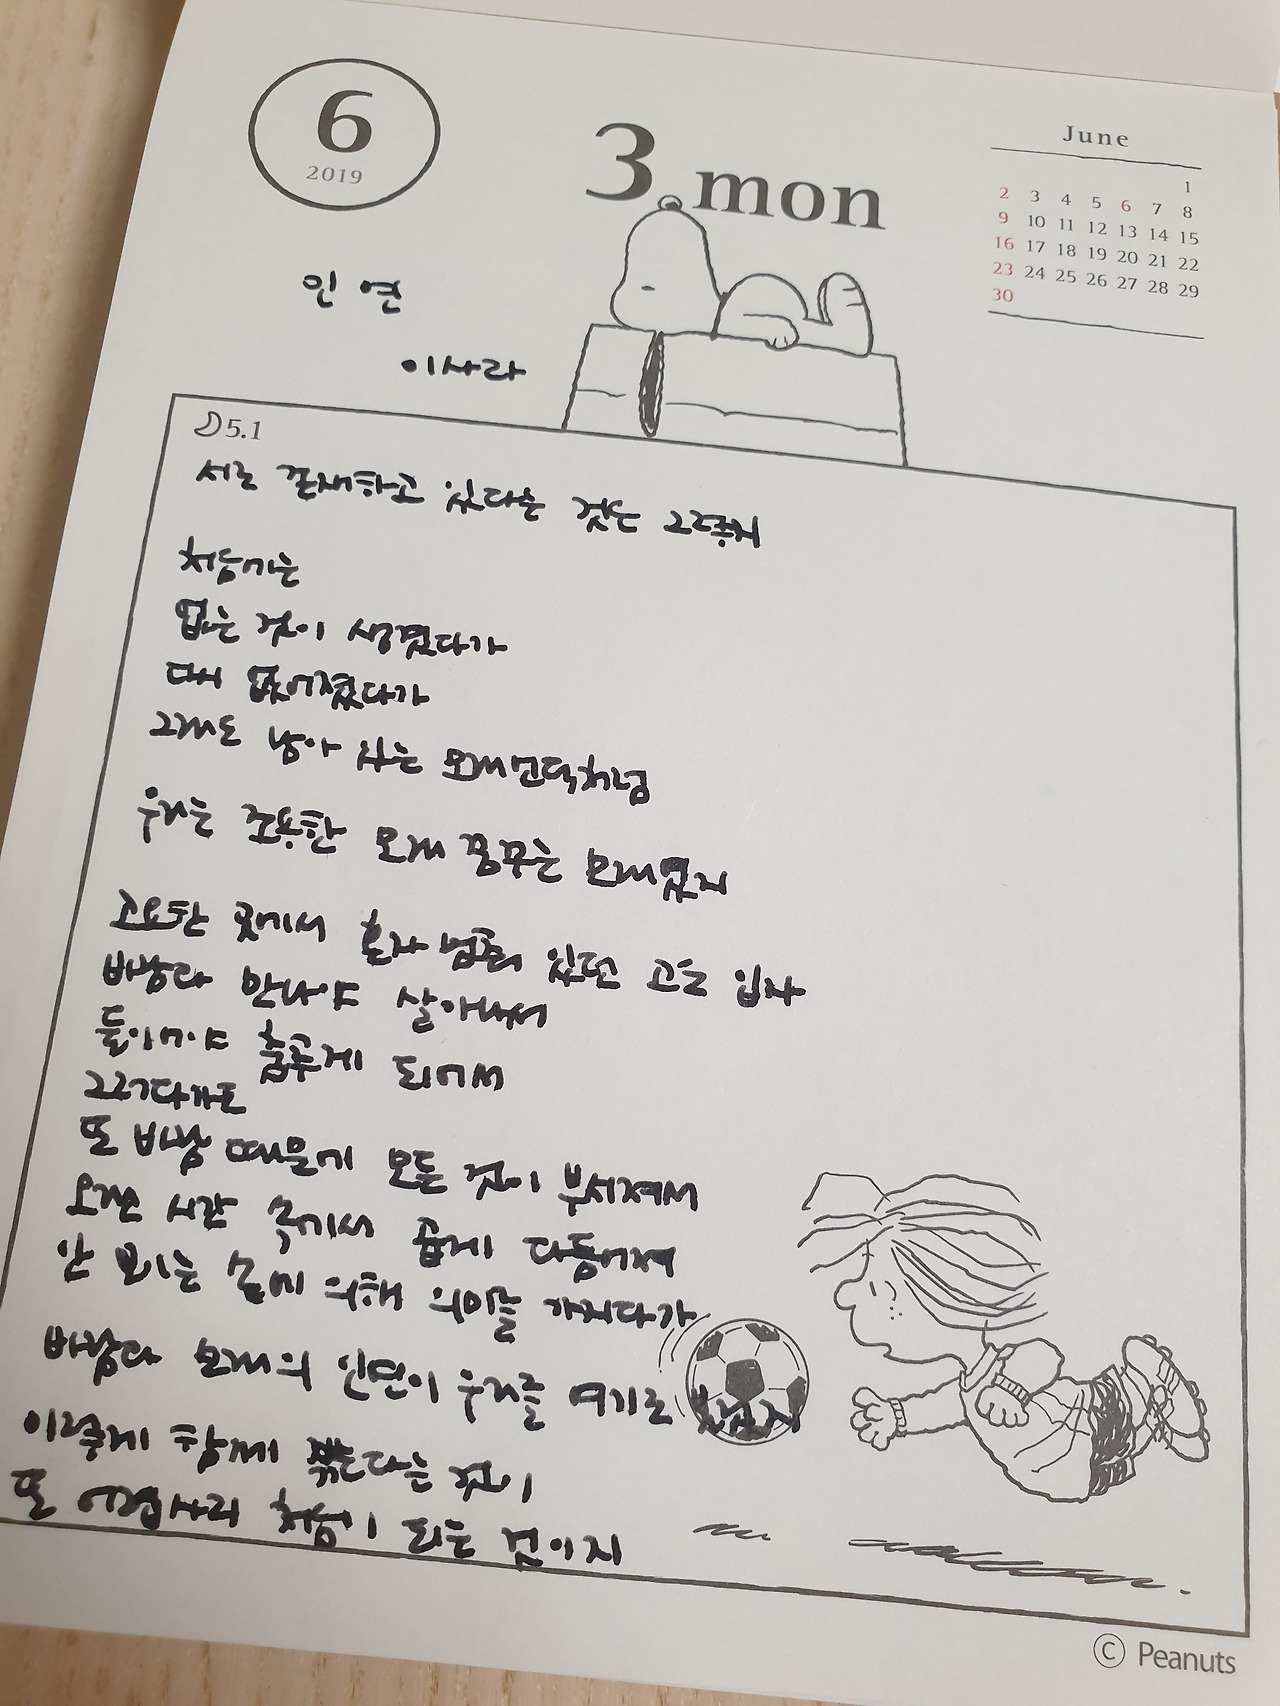 6
2019
3. mon
June
1
2 3 4 5 6 7 8
9 10 11 12 13 14 15
16 17 18 19 20 21 22
23 24 25 26 27 28 29
30
인연
이사라
5.1
서로 존재하고 있다는 것은 그렇지
처음에는
없는 것이 생겼다가
다시 없어졌다가
그래도 남아 있는 모래언덕처럼
우리는 조용한 모래 꿈꾸는 모래였지
고요한 곳에서 혼자 멈춰 있던 고운 입자
바람과 만나야 살아나서
들어야 춤추게 되어서
그러다가도
또 바람 때문에 모든 것이 부서져서
오랜 시간 속에서 곱게 다듬어져
안 보이는 손에 의해 의미를 가지다가
바람과 모래의 인연이 우리를 여기로
이렇게 함께 묶는다는 것이
또 어렵사리 처음이 되는 것이지
© Peanuts